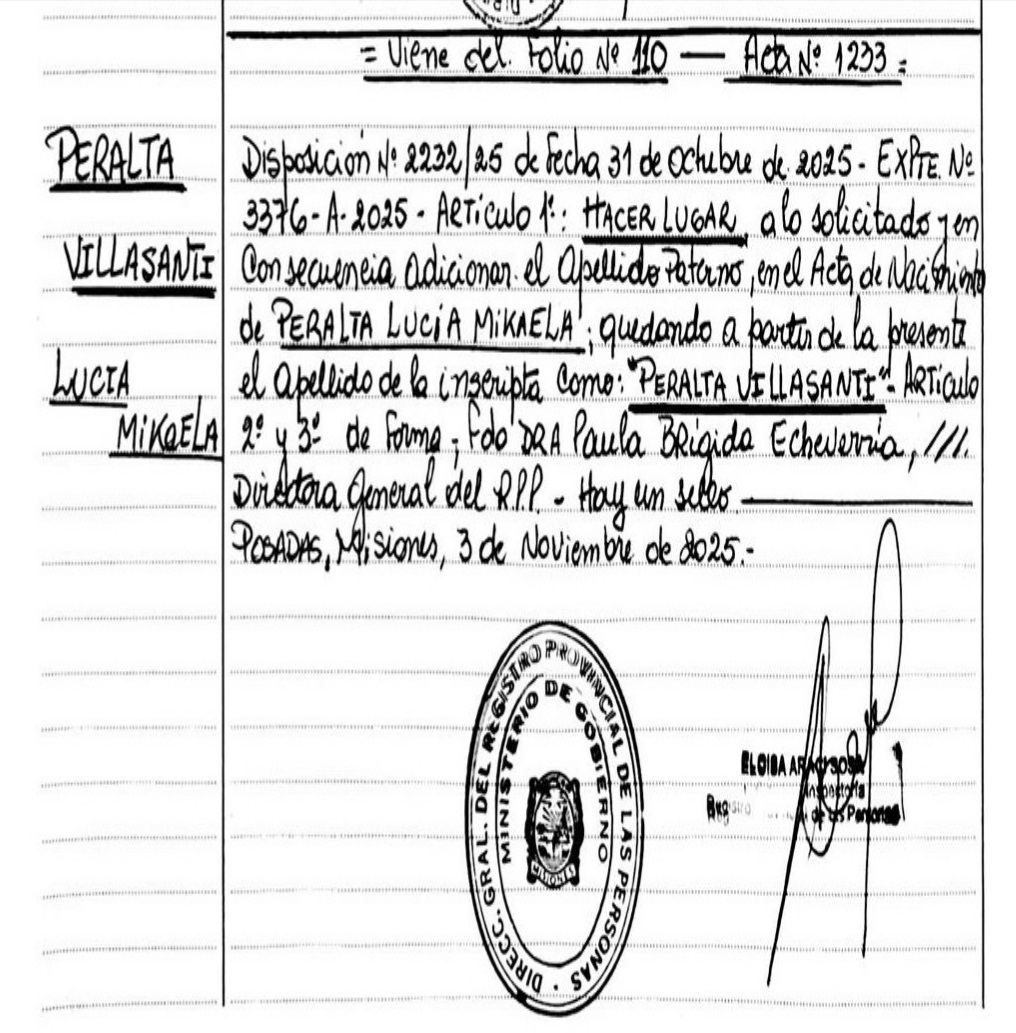 = Viene del. Folio Nº 110 — Acta Nº 1233 =
PERALTA
VILLASANTI
LUCIA
MIKAELA
Disposición Nº 2232/25 de fecha 31 de octubre de 2025 - EXPTE. Nº
3376-A-2025 - Artículo 1º: HACER LUGAR, a lo solicitado y en
Consecuencia adicionar el apellido Paterno, en el Acta de Nacimiento
de PERALTA LUCÍA MIKAELA, quedando a partir de la presente
el apellido de la inscripta como: "PERALTA VILLASANTI" - Artículo
2º y 3º de forma, Fdo DRA Paula Brígida Echeverría, ///.
Directora General del R.P.P. - Hay un sello
POSADAS, Misiones, 3 de Noviembre de 2025.-
DIRECC. GRAL. DEL REGISTRO PROVINCIAL DE LAS PERSONAS
MINISTERIO DE GOBIERNO
MISIONES
ELOISA ARACY SOSA
Inspectora
Registro de las Personas